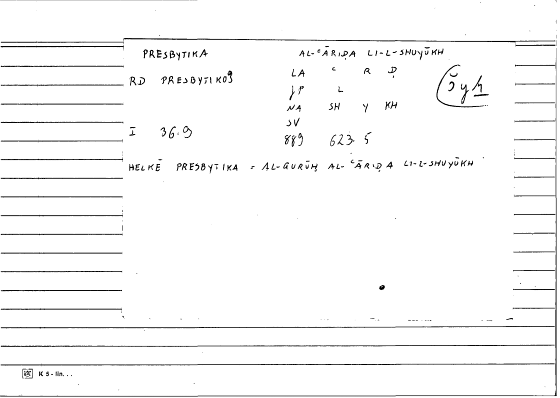 PRESBYTIKA AL-ʿĀRIḌA LI-L-SHUYŪKH
RD PRESBYTIKOS LA ʿ R Ḍ
JP L
NA SH Y KH
šyḫ
SV
I 36.9 889 623.5
HELKĒ PRESBYTIKA = AL-QURŪḤ AL-ʿĀRIḌA LI-L-SHUYŪKH
K 5 - lin. . .